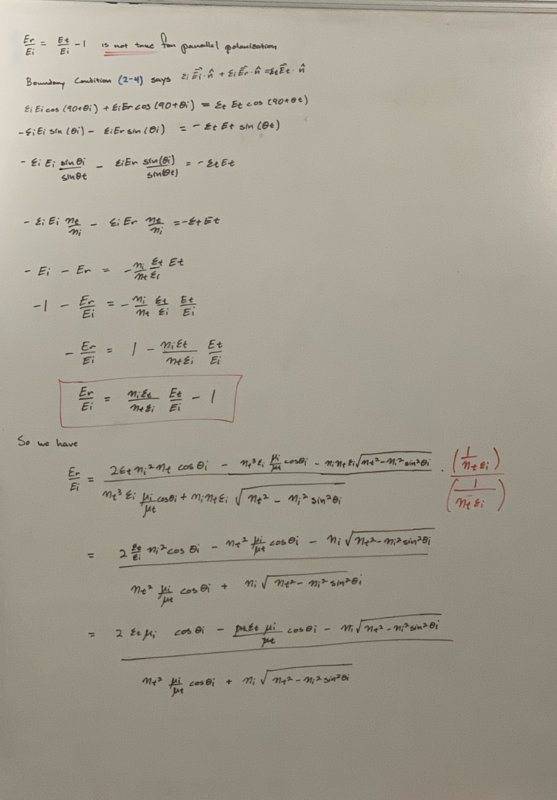 Er/Ei = Et/Ei - 1 is not true for parallel polarization
Boundary Condition (2-4) says εi E⃗i · n̂ + εi E⃗r · n̂ = εt E⃗t · n̂
εi Ei cos (90+θi) + εi Er cos (90+θi) = εt Et cos (90+θt)
-εi Ei sin (θi) - εi Er sin (θi) = -εt Et sin (θt)
-εi Ei sin θi/sin θt - εi Er sin(θi)/sin(θt) = -εt Et
-εi Ei nt/ni - εi Er nt/ni = -εt Et
-Ei - Er = -ni/nt εt/εi Et
-1 - Er/Ei = -ni/nt εt/εi Et/Ei
-Er/Ei = 1 - niεt/ntεi Et/Ei
Er/Ei = niεt/ntεi Et/Ei - 1
So we have
Er/Ei = (2εt ni² nt cosθi - nt³ εi μi/μt cosθi - ni nt εi √(nt² - ni² sin²θi)) / (nt³ εi μi/μt cosθi + ni nt εi √(nt² - ni² sin²θi)) · (1/(nt εi)) / (1/(nt εi))
= (2 εt/εi ni² cosθi - nt² μi/μt cosθi - ni √(nt² - ni² sin²θi)) / (nt² μi/μt cosθi + ni √(nt² - ni² sin²θi))
= (2 εt μi cosθi - μtεt μi/μt cosθi - ni √(nt² - ni² sin²θi)) / (nt² μi/μt cosθi + ni √(nt² - ni² sin²θi))